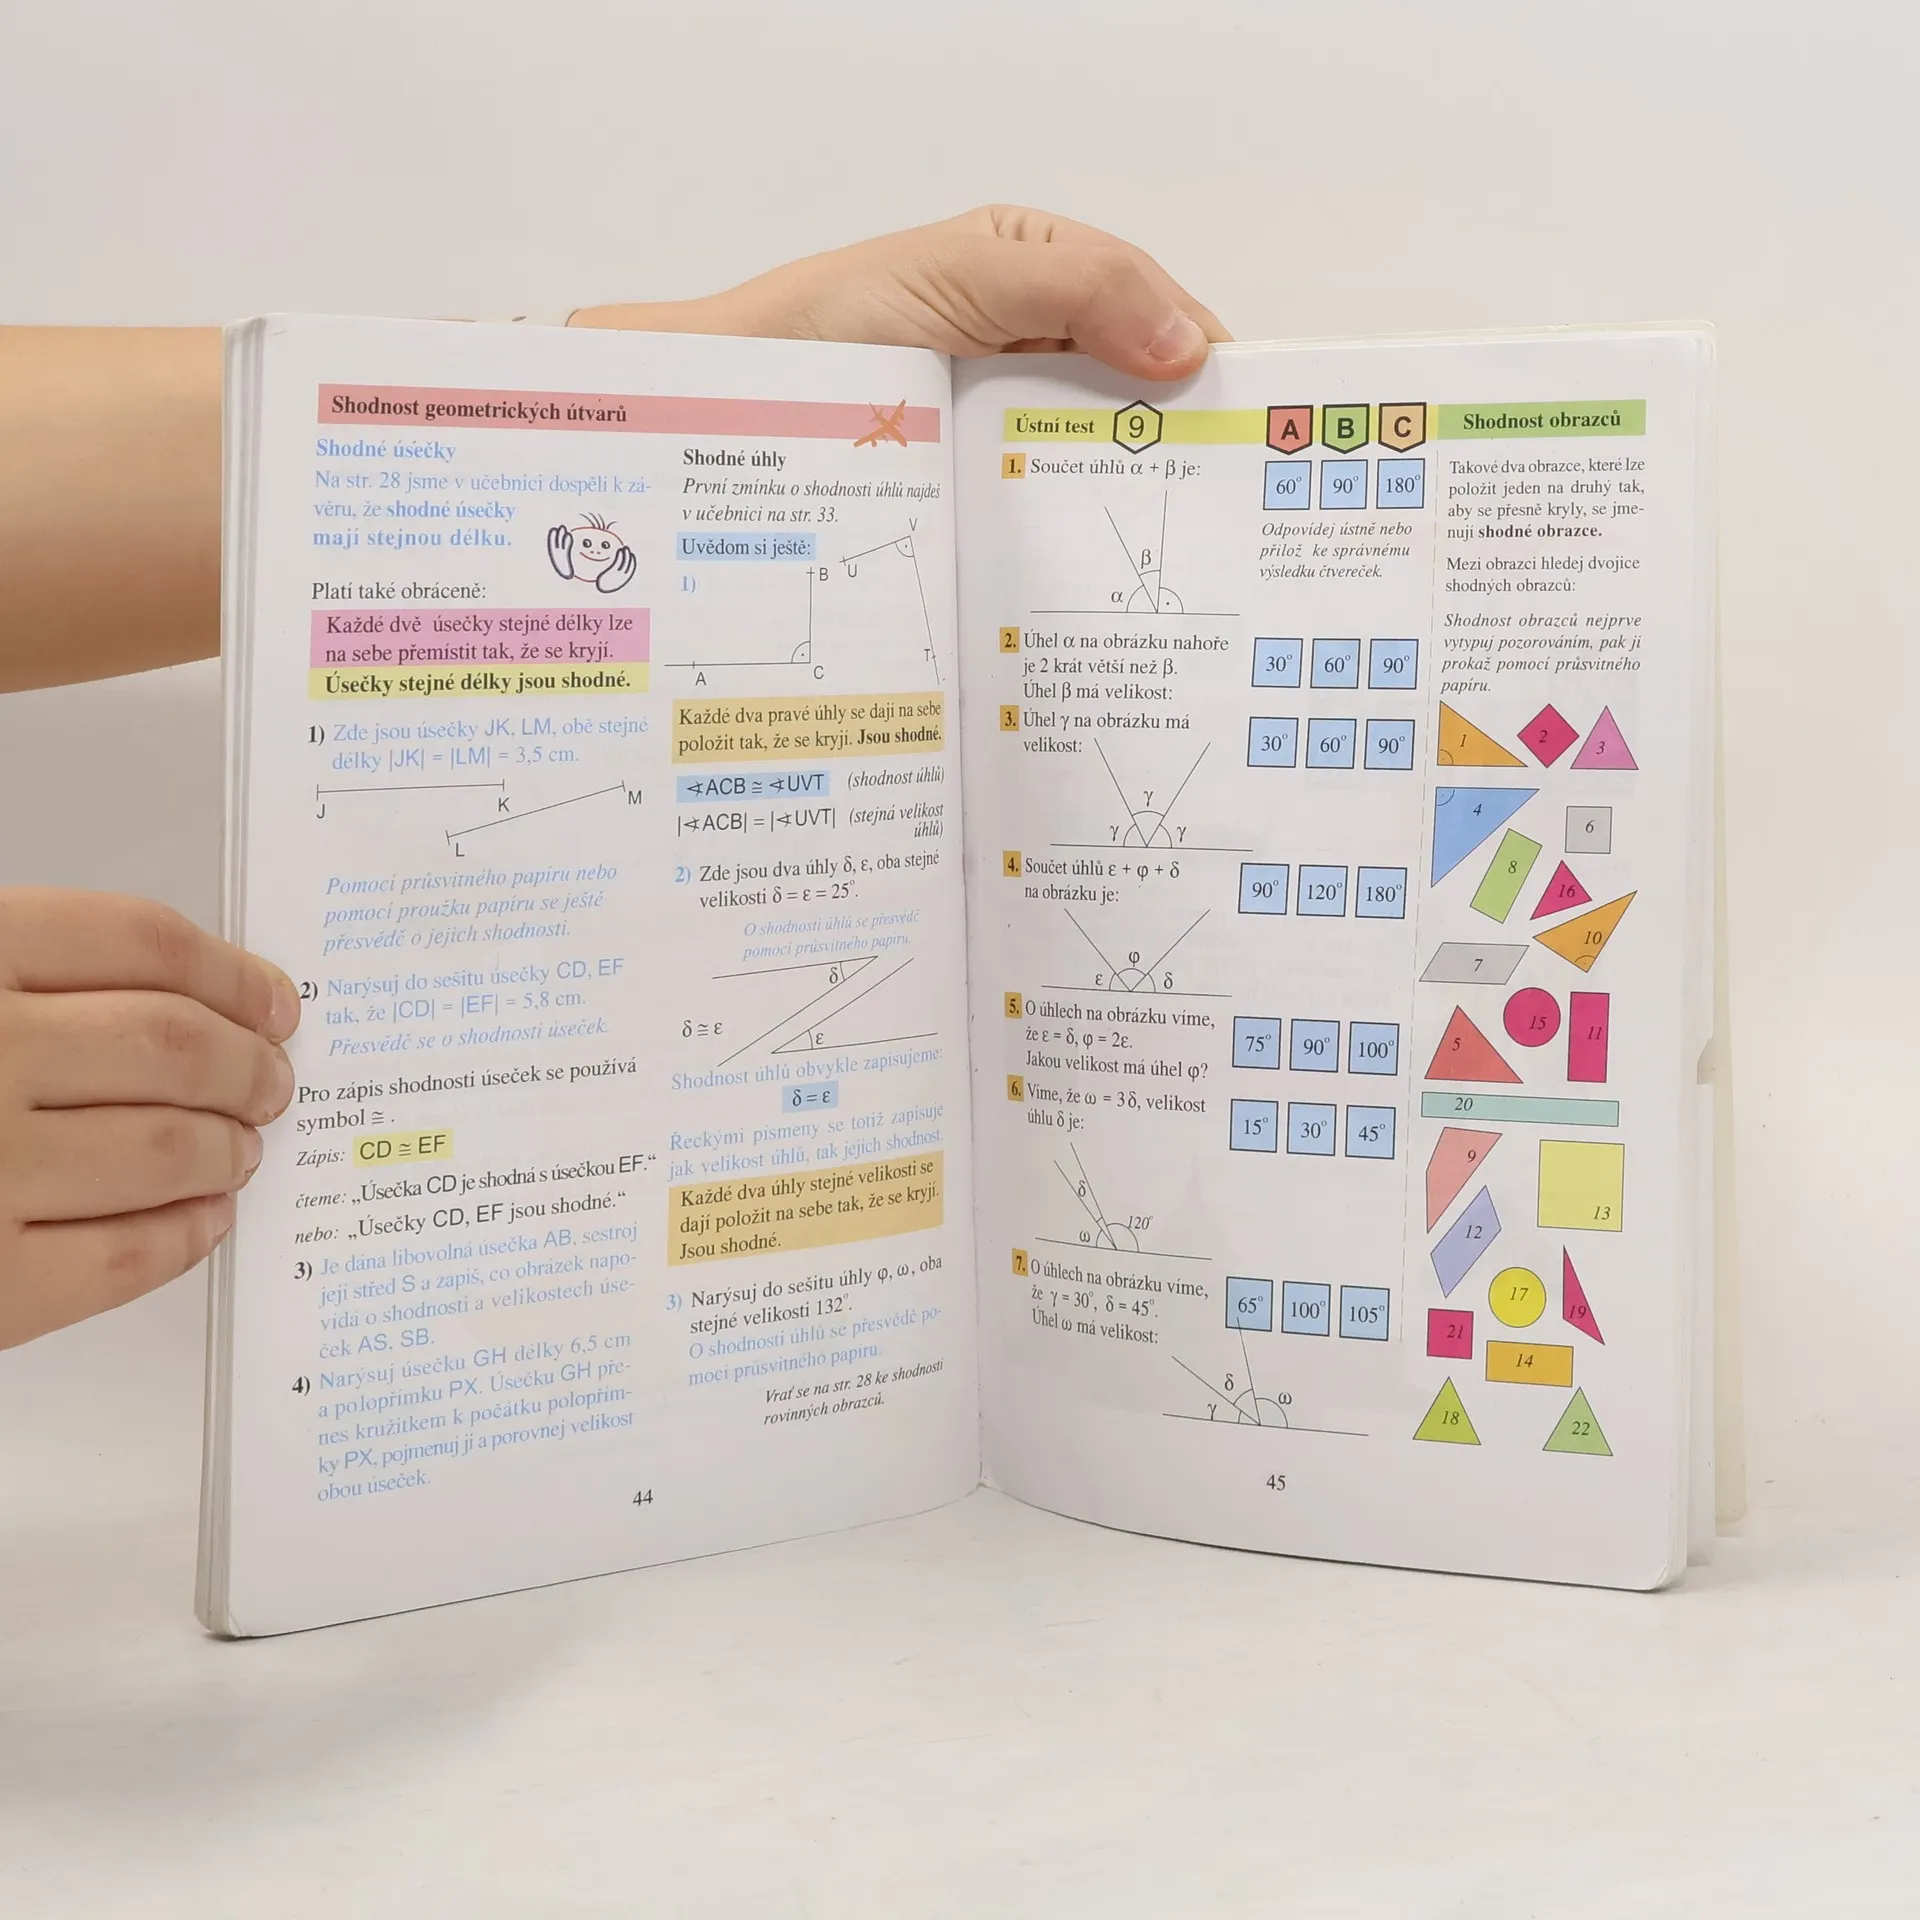 Shodnost geometrických útvarů
Shodné úsečky
Na str. 28 jsme v učebnici dospěli k zá-
věru, že shodné úsečky
mají stejnou délku.
Platí také obráceně:
Každé dvě úsečky stejné délky lze
na sebe přemístit tak, že se kryjí.
Úsečky stejné délky jsou shodné.
1) Zde jsou úsečky JK, LM, obě stejné
délky |JK| = |LM| = 3,5 cm.
J
K
M
L
Pomocí průsvitného papíru nebo
pomocí proužku papíru se ještě
přesvědč o jejich shodnosti.
2) Narýsuj do sešitu úsečky CD, EF
tak, že |CD| = |EF| = 5,8 cm.
Přesvědč se o shodnosti úseček.
Pro zápis shodnosti úseček se používá
symbol ≅ .
Zápis: CD ≅ EF
čteme: „Úsečka CD je shodná s úsečkou EF.“
nebo: „Úsečky CD, EF jsou shodné.“
3) Je dána libovolná úsečka AB, sestroj
její střed S a zapiš, co obrázek napo-
vídá o shodnosti a velikostech úse-
ček AS, SB.
4) Narýsuj úsečku GH délky 6,5 cm
a polopřímku PX. Úsečku GH pře-
nes kružítkem k počátku polopřím-
ky PX, pojmenuj ji a porovnej velikost
obou úseček.
44
Shodné úhly
První zmínku o shodnosti úhlů najdeš
v učebnici na str. 33.
Uvědom si ještě:
1)
B
U
V
T
A
C
Každé dva pravé úhly se dají na sebe
položit tak, že se kryjí. Jsou shodné.
∢ACB ≅ ∢UVT (shodnost úhlů)
|∢ACB| = |∢UVT| (stejná velikost
úhlů)
2) Zde jsou dva úhly δ, ε, oba stejné
velikosti δ = ε = 25°.
O shodnosti úhlů se přesvědč
pomocí průsvitného papíru.
δ
δ ≅ ε
ε
Shodnost úhlů obvykle zapisujeme:
δ = ε
Řeckými písmeny se totiž zapisuje
jak velikost úhlů, tak jejich shodnost.
Každé dva úhly stejné velikosti se
dají položit na sebe tak, že se kryjí.
Jsou shodné.
3) Narýsuj do sešitu úhly φ, ω, oba
stejné velikosti 132°.
O shodnosti úhlů se přesvědč po-
mocí průsvitného papíru.
Vrať se na str. 28 ke shodnosti
rovinných obrazců.
Ústní test 9 A B C
1. Součet úhlů α + β je:
60° 90° 180°
Odpovídej ústně nebo
přilož ke správnému
výsledku čtvereček.
β
α
2. Úhel α na obrázku nahoře
je 2 krát větší než β.
Úhel β má velikost:
30° 60° 90°
3. Úhel γ na obrázku má
velikost:
30° 60° 90°
γ
γ γ
4. Součet úhlů ε + φ + δ
na obrázku je:
90° 120° 180°
φ
ε δ
5. O úhlech na obrázku víme,
že ε = δ, φ = 2ε.
Jakou velikost má úhel φ?
75° 90° 100°
6. Víme, že ω = 3δ, velikost
úhlu δ je:
15° 30° 45°
δ
120°
ω
7. O úhlech na obrázku víme,
že γ = 30°, δ = 45°.
Úhel ω má velikost:
65° 100° 105°
δ
ω
γ
45
Shodnost obrazců
Takové dva obrazce, které lze
položit jeden na druhý tak,
aby se přesně kryly, se jme-
nují shodné obrazce.
Mezi obrazci hledej dvojice
shodných obrazců:
Shodnost obrazců nejprve
vytypuj pozorováním, pak ji
prokaž pomocí průsvitného
papíru.
1
2
3
4
6
8
16
10
7
15
11
5
20
9
13
12
17
19
21
14
18
22